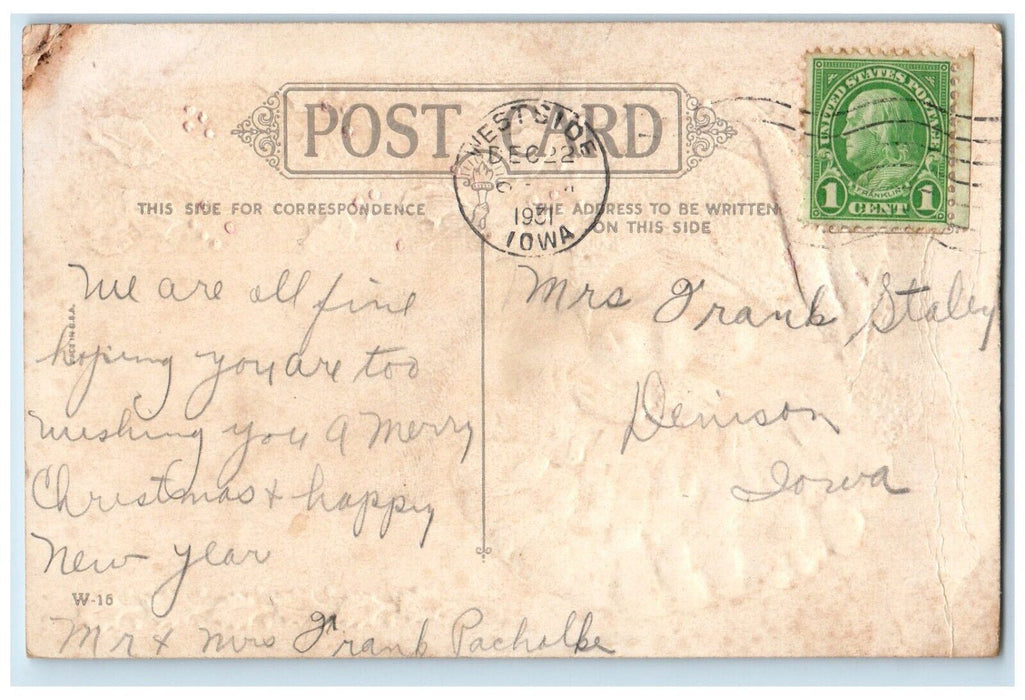 POST CARD
WESTSIDE
DEC 22
1931
IOWA
UNITED STATES POSTAGE
FRANKLIN
1 CENT 1
THIS SIDE FOR CORRESPONDENCE
THE ADDRESS TO BE WRITTEN
ON THIS SIDE
MADE IN U.S.A.
We are all fine
hoping you are too
wishing you a Merry
Christmas & happy
New year
W-16
Mr & Mrs Frank Pacholke
Mrs Frank Staley
Denison
Iowa